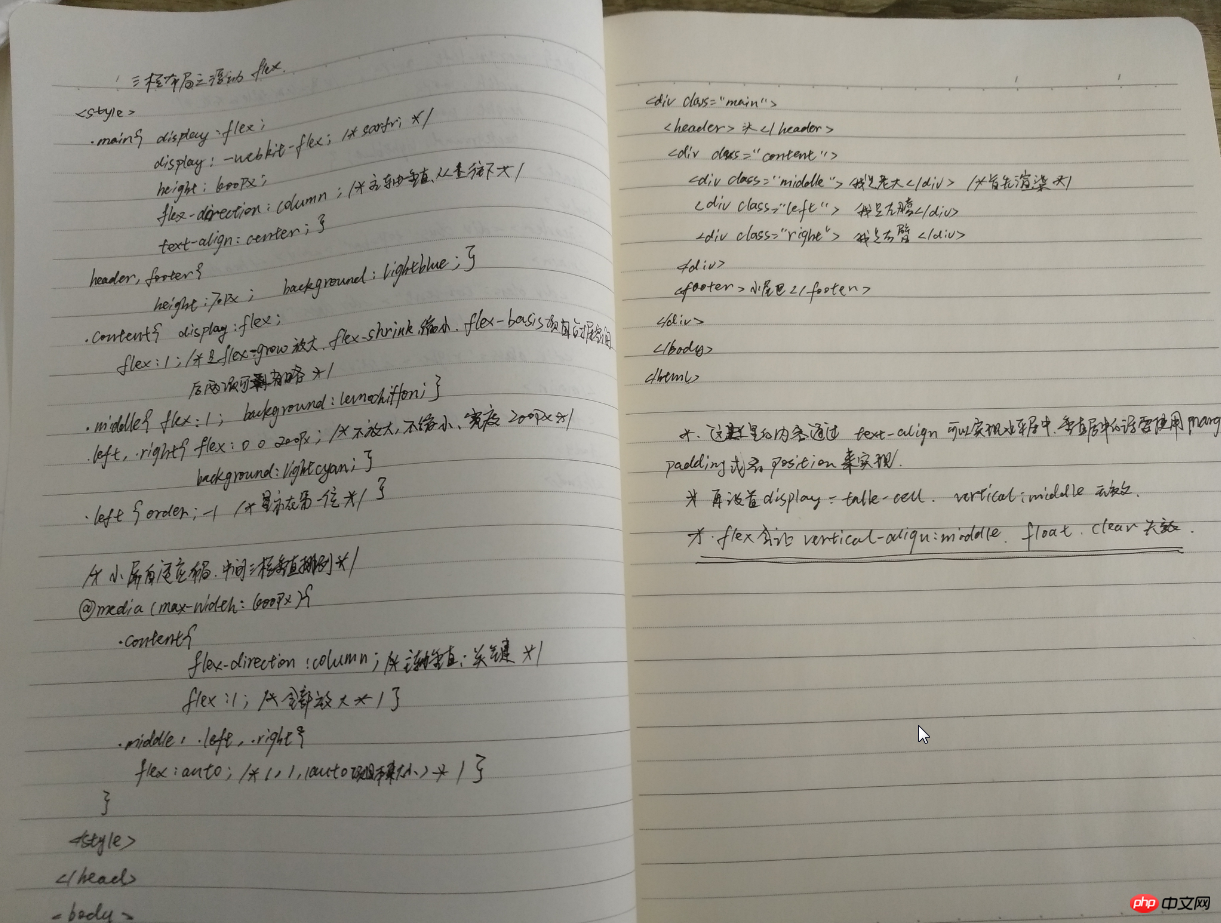 三栏布局之 flex.
<style>
.main{ display:flex;
display: -webkit-flex; /* */
height: 600px;
flex-direction: column; /* 主轴垂直,从上往下 */
text-align: center; }
header, footer{
height:70px; background: lightblue; }
.content{ display:flex;
flex:1; /* 是flex-grow 放大, flex-shrink 缩小, flex-basis
后两项可省略 */
.middle{ flex:1; background: lemochiffon; }
.left, .right{ flex: 0 0 200px; /* 不放大,不缩小、宽度 200px */
background: lightcyan; }
.left { order: -1 /* 显示在第一位 */ }
/* 小屏自适应 , 中间三栏垂直排列 */
@media (max-width: 600px){
.content{
flex-direction: column; /* 主轴垂直; 关键 */
flex:1; /* 全部放大 */ }
.middle, .left, .right{
flex: auto; /* 1, 1, (auto 大小) */ }
}
<style>
</head>
<body>
<div class="main">
<header> 头 </header>
<div class="content">
<div class="middle"> 我是老大 </div> /* 首先渲染 */
<div class="left"> 我是左 </div>
<div class="right"> 我是右臂 </div>
<div>
<footer> 小尾巴 </footer>
</div>
</body>
</html>
*. 这里的内容通过 text-align 可以实现水平居中, 垂直居中的话要使用 marg
padding 或者 position 来实现.
* 再设置 display = table-cell. vertical: middle 无效.
*. flex 会让 vertical-align: middle. float. clear 失效.
php 中文网